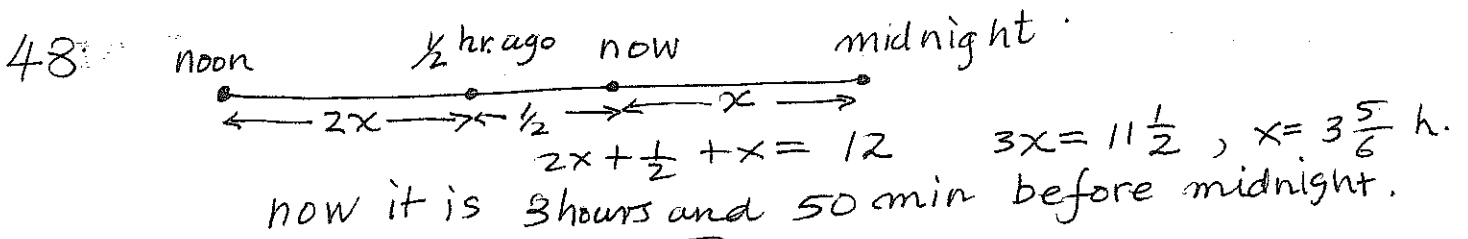 48. noon ½ hr. ago now midnight
2x ½ x
2x + ½ + x = 12 3x = 11 ½ , x = 3 5/6 h.
now it is 3 hours and 50 min before midnight.